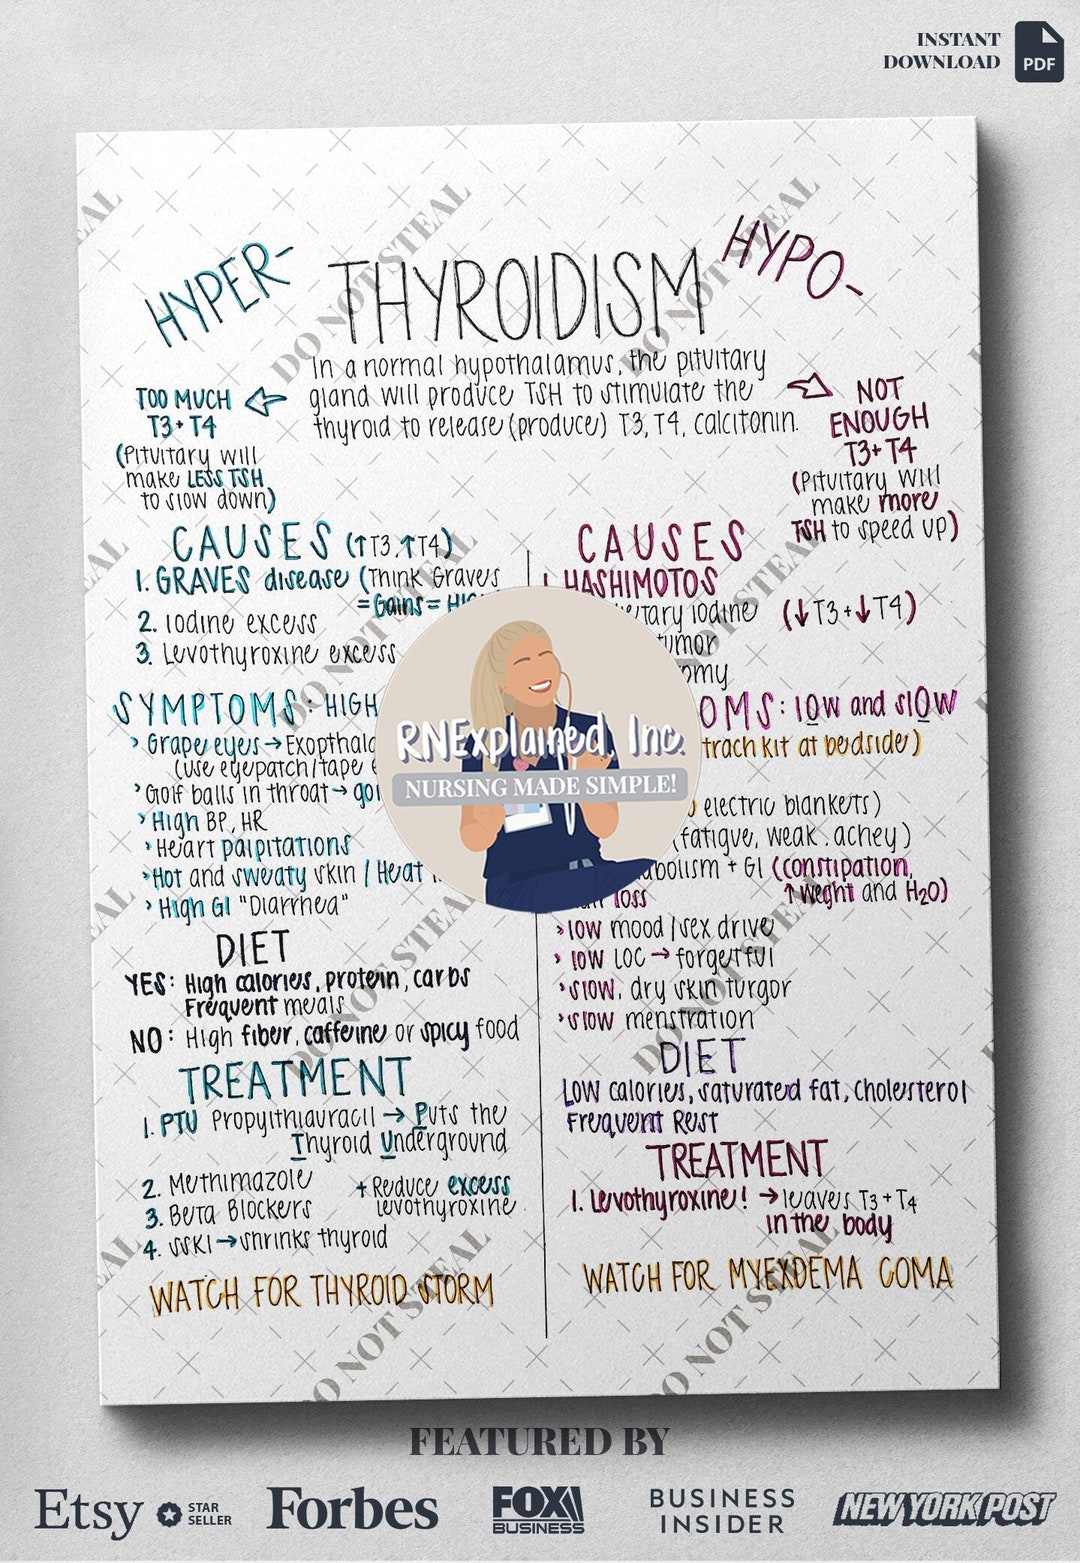 INSTANT
DOWNLOAD
PDF
HYPER-
THYROIDISM
HYPO-
In a normal hypothalamus, the pituitary
gland will produce TSH to stimulate the
thyroid to release (produce) T3, T4, calcitonin.
TOO MUCH
T3+T4
(Pituitary will
make LESS TSH
to slow down)
NOT
ENOUGH
T3+T4
(Pituitary will
make more
TSH to speed up)
CAUSES (↑T3,↑T4)
1. GRAVES disease (Think Graves
=Gains=
2. Iodine excess
3. Levothyroxine excess
SYMPTOMS: HIGH
> Grape eyes→
(use eyepatch/tape
> Golf balls in throat→
> High BP, HR
> Heart palpitations
> Hot and sweaty skin / Heat
> High GI "Diarrhea"
DIET
YES: High calories, protein, carbs
Frequent meals
NO: High fiber, caffeine or spicy food
TREATMENT
1. PTU Propylthiauracil → Puts the
Thyroid Underground
2. Methimazole
3. Beta Blockers
4. SSKI→shrinks thyroid
+ Reduce excess
levothyroxine
WATCH FOR THYROID STORM
CAUSES
1. HASHIMOTOS
iodine
(↓T3+↓T4)
: lOw and slOw
trach kit at bedside)
electric blankets)
(fatigue, weak, achey)
+ GI (constipation,
↑Weght and H2O)
loss
> low mood /sex drive
> low LOC → forgetful
> slow, dry skin turgor
> slow menstration
DIET
Low calories, saturated fat, Cholesterol
Frequent Rest
TREATMENT
1. Levothyroxine! → leaves T3+T4
in the body
WATCH FOR MYEXDEMA COMA
RNExplained, Inc.
NURSING MADE SIMPLE!
DO NOT STEAL
DO NOT STEAL
DO NOT STEAL
DO NOT STEAL
DO NOT STEAL
DO NOT STEAL
DO NOT STEAL
DO NOT STEAL
FEATURED BY
Etsy STAR
SELLER
Forbes
FOX
BUSINESS
BUSINESS
INSIDER
NEW YORK POST